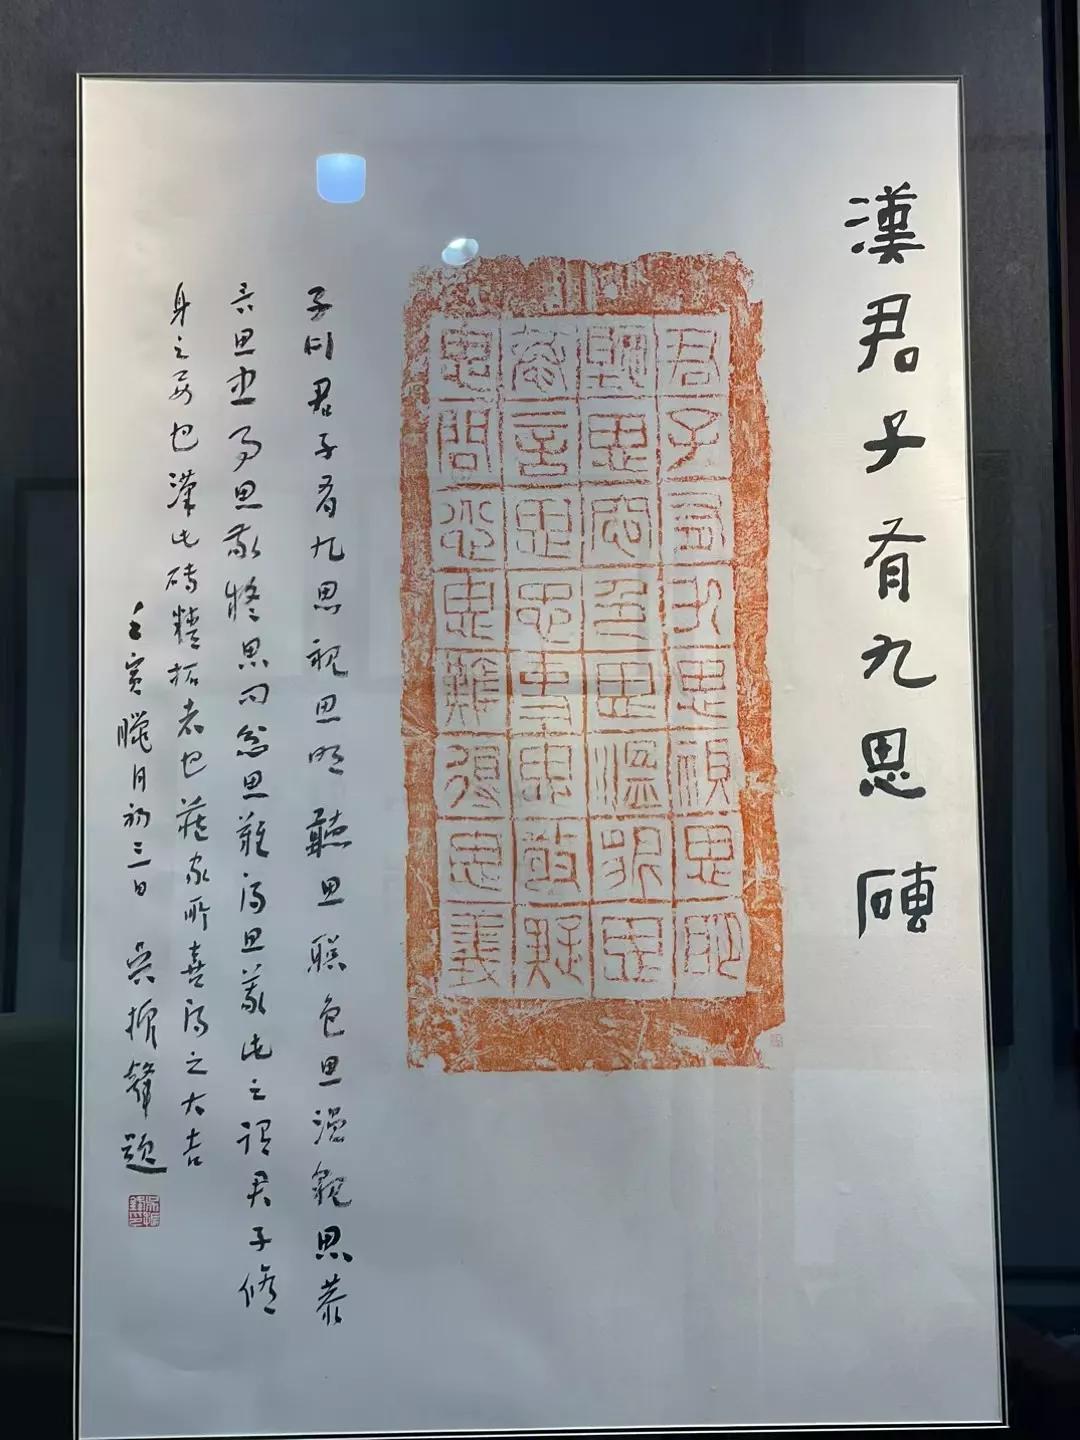 漢君子有九思磚
君子有九思視思明
聽思聰色思溫貌思
恭言思忠事思敬疑
思問忿思難得思義
子曰君子有九思視思明聽思聰色思溫貌思恭
言思忠事思敬疑思問忿思難得思義此之謂君子修
身之要也漢此磚精拓者也藏家所喜得之大吉
壬寅臘月初三日 吳振鋒題